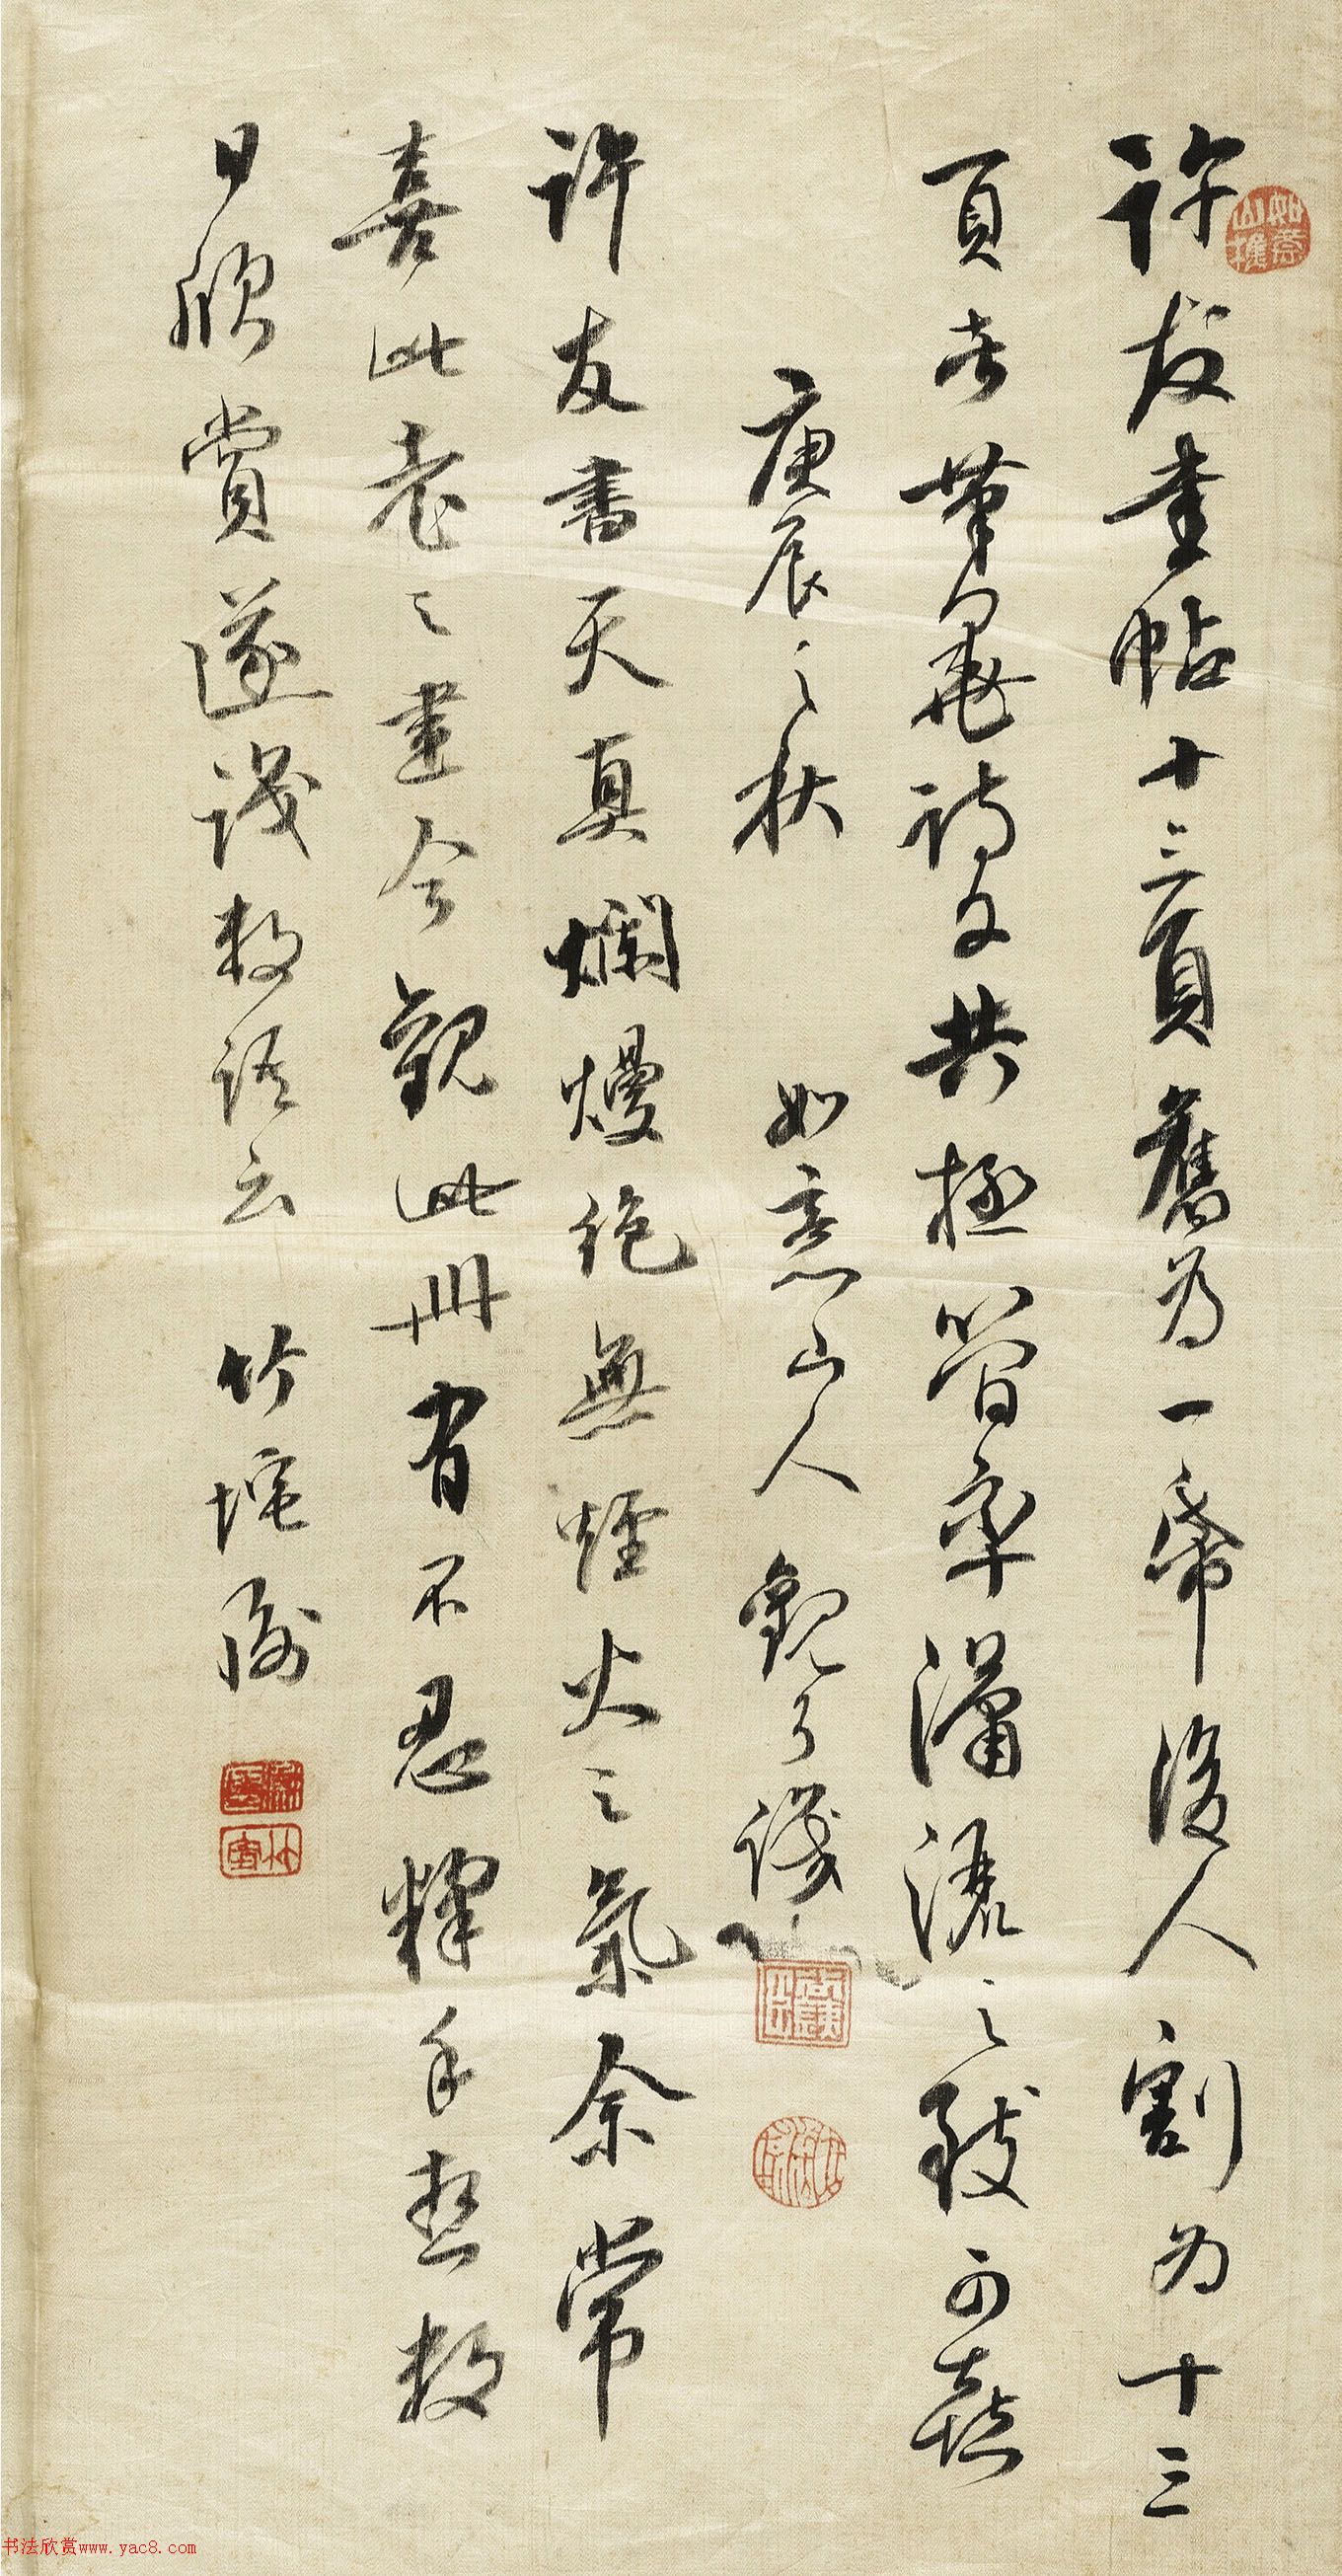 許友書帖十三頁舊為一幕後人割為十三
頁者筆墨詩文共極簡率瀟灑之致可喜
庚辰之秋 如意山人觀了識
許友書天真爛熳絕無煙火之氣余常
喜此老之畫今觀此冊有不忍釋手愁數
日欣賞遂識數語云 竹垞
如意山樵
书法欣赏www.yac8.com